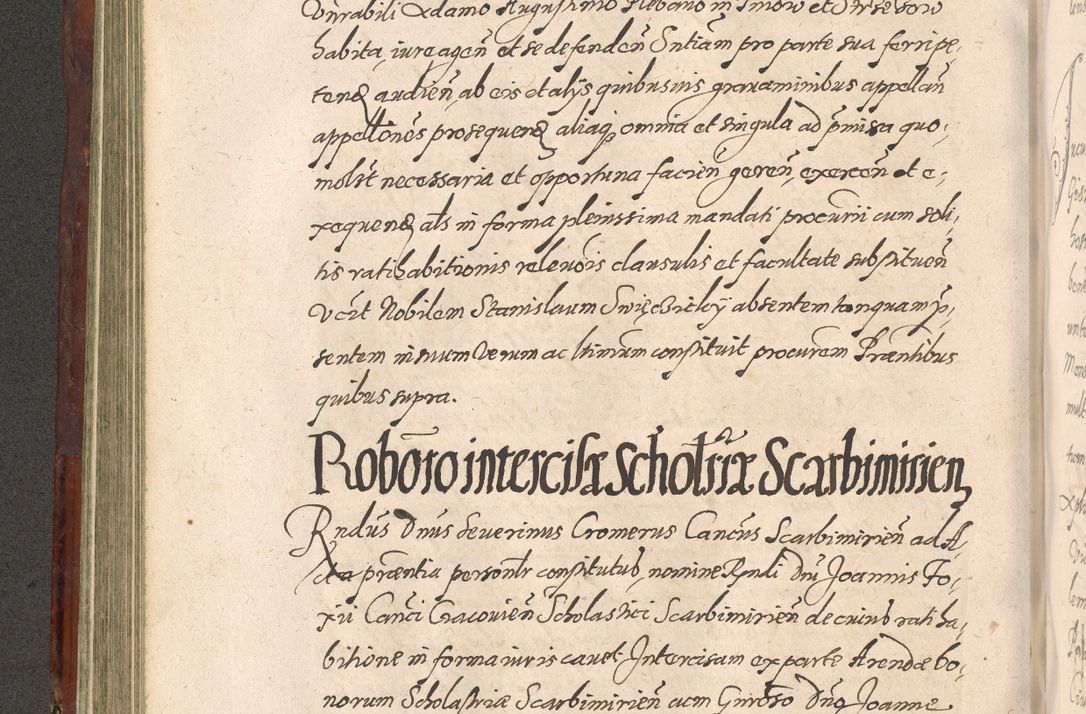 Vnrabili Adamo Augustino Plebano in
habita, iure agen̄ et se defenden̄ Sntiam pro parte sua ferri pe-
tend audien̄, ab eis et alijs quibusuis grauaminibus appellan̄
appellōnes prosequend aliaq omnia et singula ad p̄missa quo-
molt necessaria et opportuna facien̄ geren̄, exercen̄ et e-
xequend, als in forma plenissima mandati procurii cum soli-
tis ratihabitionis releuōis clausulis et facultate substituen̄
Vcit Nobilem Stanislaum Swięczicky absentem tanquam p-
sentem in suum Verum ac ltimum constituit procurem Præntibus
quibus supra.
Roborō intercisæ Scholriæ Scarbimirien
Rndus Dnus Seuerinus Cromerus Cancus Scarbimirien̄ ad A-
cta præntia personlr constitutus, nomine Rndi Dni Joannis Fo-
xii Canci Cracouien̄ Scholastici Scarbimirien̄ de cuius ratiha-
bitione in forma iuris cauet Intercisam ex parte Arendæ bo-
norum Scholastriæ Scarbimirien̄ cum Gnroso Dno Joanne